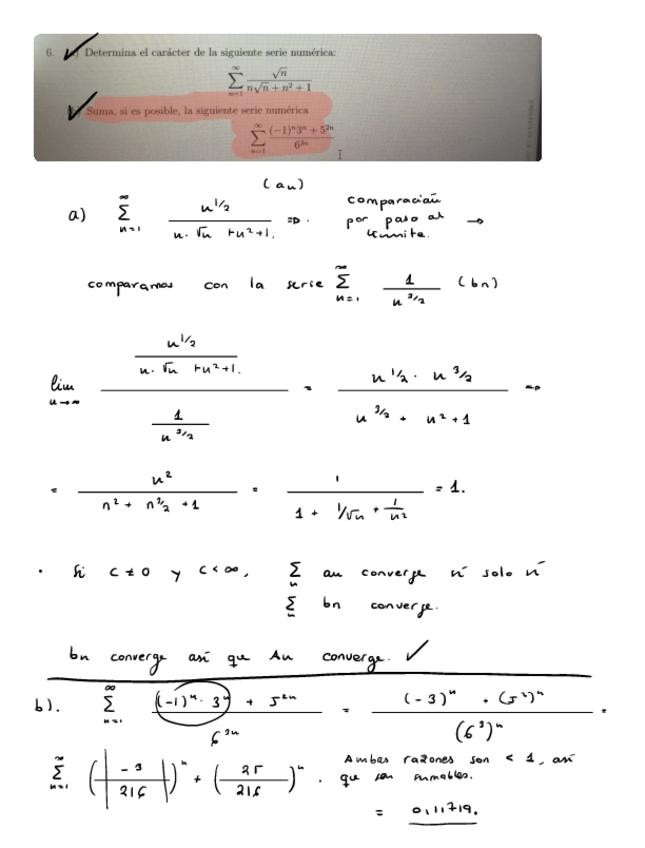 6. a) Determina el carácter de la siguiente serie numérica:
∞
∑ √n / (n√n + n² + 1)
n=1
b) Suma, si es posible, la siguiente serie numérica
∞
∑ ((-1)ⁿ3ⁿ + 5²ⁿ) / 6³ⁿ
n=1
(an)
a) ∑ n=1 ∞ n^1/2 / (n·√n + n² + 1.) => comparación por paso al límite. →
comparamos con la serie ∑ n=1 ∞ 1 / n^3/2 (bn)
lim n→∞ (n^1/2 / (n·√n + n² + 1.)) / (1 / n^3/2) = (n^1/2 · n^3/2) / (n^3/2 + n² + 1) =>
= n² / (n² + n^3/2 + 1) = 1 / (1 + 1/√n + 1/n²) = 1.
· Si C ≠ 0 y C < ∞, ∑ n an converge si solo si
∑ n bn converge.
bn converge así que An converge. ✓
b). ∑ n=1 ∞ ((-1)ⁿ · 3ⁿ + 5²ⁿ) / 6³ⁿ = ((-3)ⁿ + (5²)ⁿ) / (6³)ⁿ =
∑ n=1 ∞ (|-3 / 216|)ⁿ + (25 / 216)ⁿ. Ambas razones son < 1, así
que son sumables.
= 0,11719.